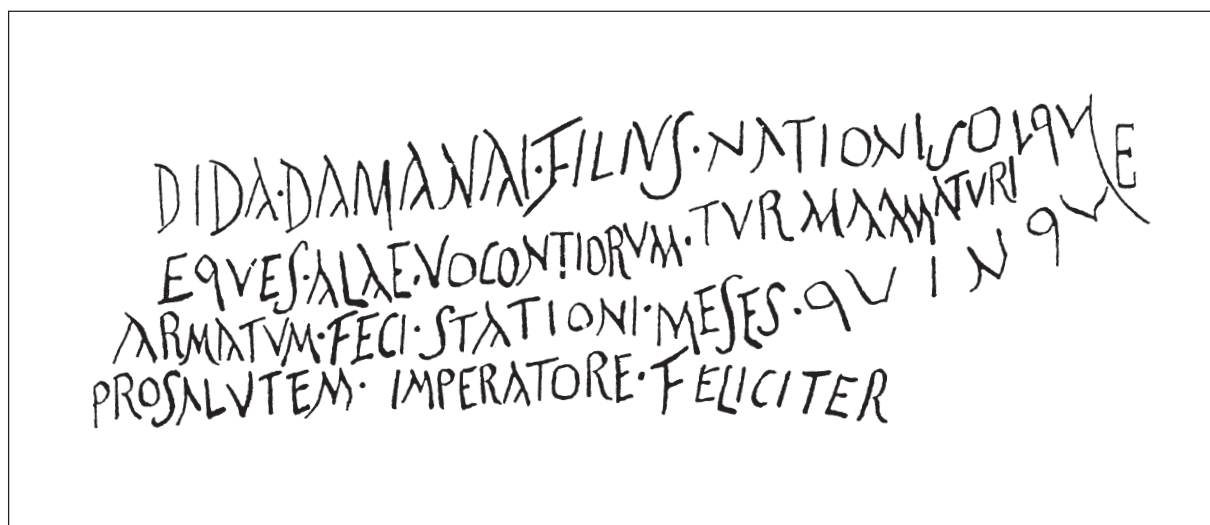 DIDA·DAMANAI·FILIVS·NATIONISOLQV
EQVES·ALAE·VOCONTIORVM·TVRMA MATVRI
ARMATVM·FECI·STATIONI·MESES·QVINQVE
PROSALVTEM· IMPERATORE·FELICITER